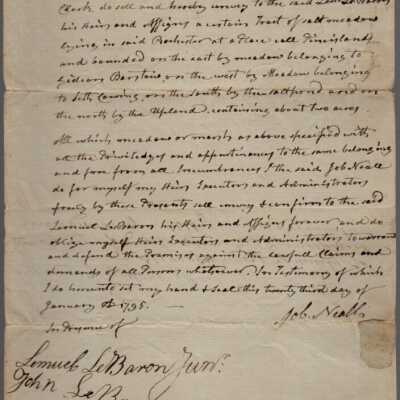 Clark, do sell and hereby convey to the said Lem. LeBaron
his Heirs and Assigns a certain Tract of salt meadow
lying in said Rochester at a Place call Pineisland
and bounded on the east by meadow belonging to
Gideon Barstow, on the west by Meadow belonging
to Seth on the South by the saltpond and on
the north by the Upland. containing about two acres
which meadow or marsh as above specified with
all the Priviledges and appurtinances to the same belonging
and free from all Incumbrances I the said Job Neall
do for myself my Heirs Executors and Administrators
freely by these Presents sell convey & confirm to the said
Lemuel LeBaron his Heirs and Assigns forever, and do
oblige myself Heirs Executors and Administrators to warrant
and defend the Premises against the lawfull Claims and
demands of all Persons whatsoever. In Testimony of which
I do hereunto set my hand & seal this twenty third day of
January 1795.
Job Neall
In Presence of
Lemuel LeBaron Junr.
John LeB